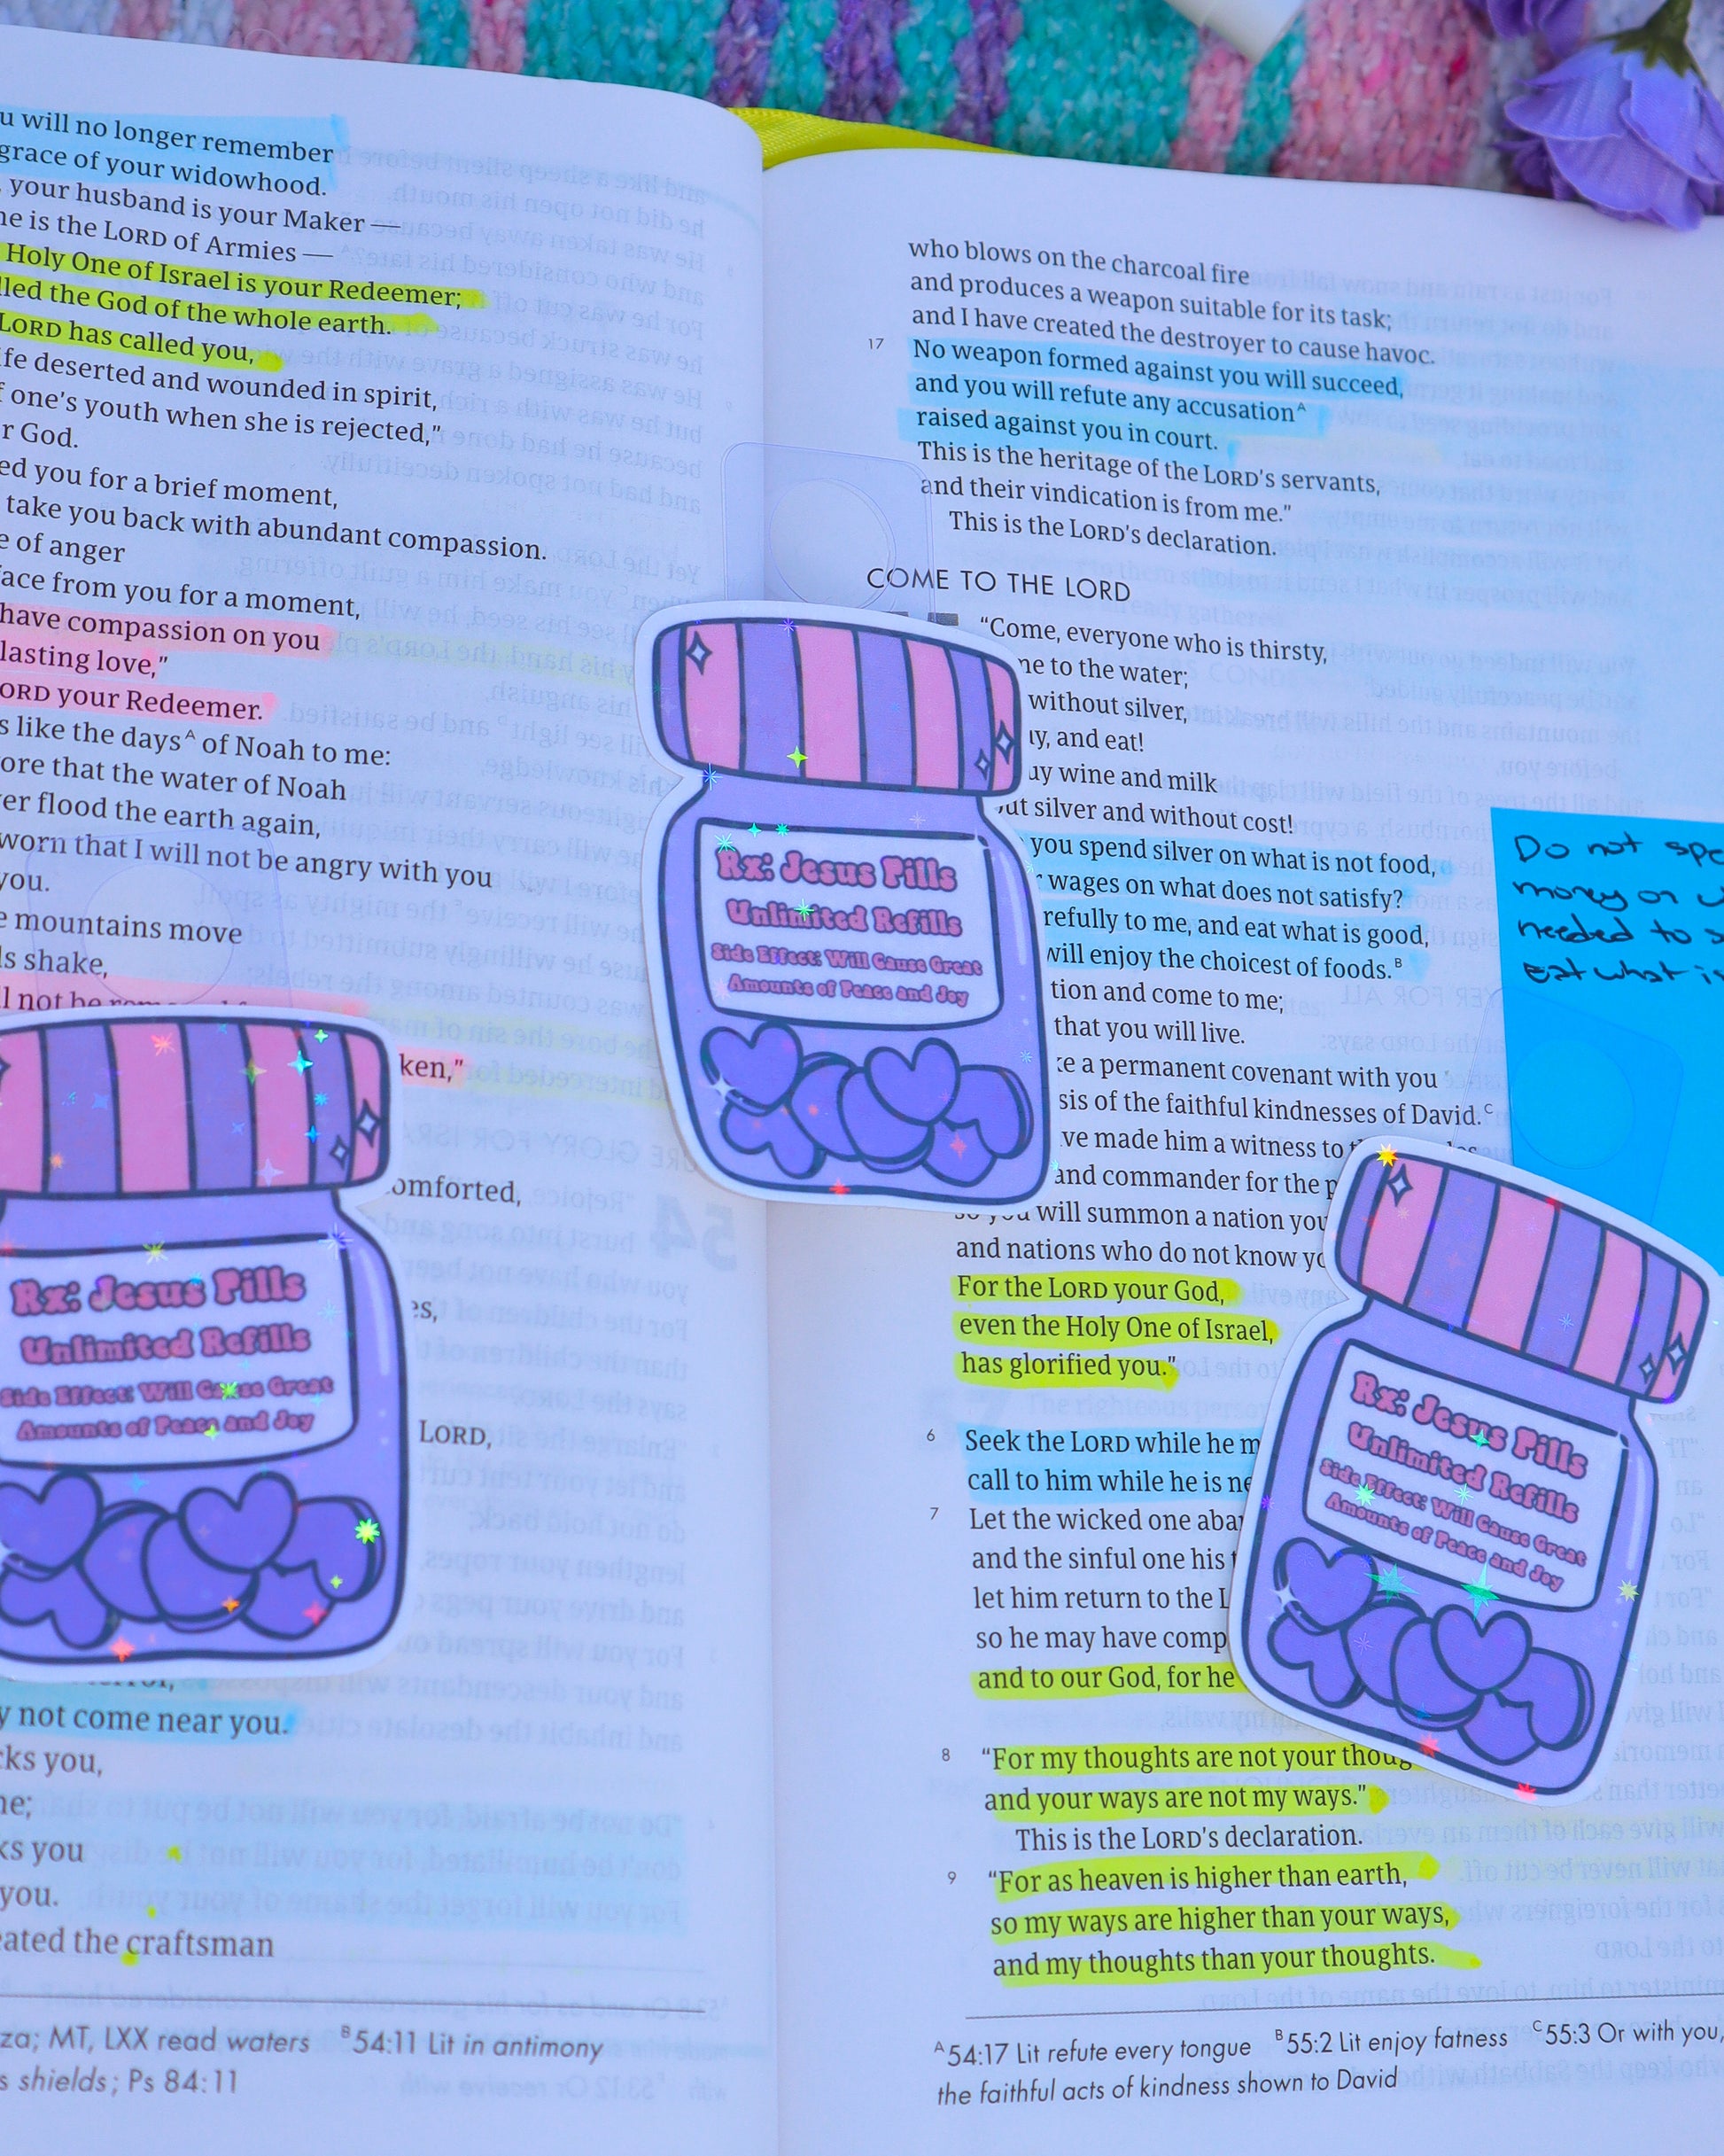 u will no longer remember
grace of your widowhood.
, your husband is your Maker —
ne is the LORD of Armies —
Holy One of Israel is your Redeemer;
lled the God of the whole earth.
LORD has called you,
ife deserted and wounded in spirit,
f one's youth when she is rejected,"
r God.
ed you for a brief moment,
take you back with abundant compassion.
e of anger
face from you for a moment,
have compassion on you
lasting love,"
ORD your Redeemer.
s like the days^A of Noah to me:
ore that the water of Noah
er flood the earth again,
worn that I will not be angry with you
you.
e mountains move
ls shake,
l not be
ken,"
omforted,
es,
LORD,
y not come near you.
cks you,
ne;
ks you
you.
eated the craftsman
za; MT, LXX read waters ^B54:11 Lit in antimony
s shields; Ps 84:11
Rx: Jesus Pills
Unlimited Refills
Side Effect: Will Cause Great
Amounts of Peace and Joy
who blows on the charcoal fire
and produces a weapon suitable for its task;
and I have created the destroyer to cause havoc.
17 No weapon formed against you will succeed,
and you will refute any accusation^A
raised against you in court.
This is the heritage of the LORD's servants,
and their vindication is from me."
This is the LORD's declaration.
COME TO THE LORD
"Come, everyone who is thirsty,
me to the water;
without silver,
uy, and eat!
uy wine and milk
ut silver and without cost!
you spend silver on what is not food,
r wages on what does not satisfy?
refully to me, and eat what is good,
will enjoy the choicest of foods.^B
tion and come to me;
that you will live.
ke a permanent covenant with you
sis of the faithful kindnesses of David.^C
ve made him a witness to
and commander for the p
so you will summon a nation you
and nations who do not know yo
For the LORD your God,
even the Holy One of Israel,
has glorified you."
6 Seek the LORD while he m
call to him while he is ne
7 Let the wicked one aba
and the sinful one his t
let him return to the L
so he may have comp
and to our God, for he
8 "For my thoughts are not your thoug
and your ways are not my ways."
This is the LORD's declaration.
9 "For as heaven is higher than earth,
so my ways are higher than your ways,
and my thoughts than your thoughts.
^A54:17 Lit refute every tongue ^B55:2 Lit enjoy fatness ^C55:3 Or with you,
the faithful acts of kindness shown to David
Rx: Jesus Pills
Unlimited Refills
Side Effect: Will Cause Great
Amounts of Peace and Joy
Do not spe
money on
needed to s
eat what is
Rx: Jesus Pills
Unlimited Refills
Side Effect: Will Cause Great
Amounts of Peace and Joy